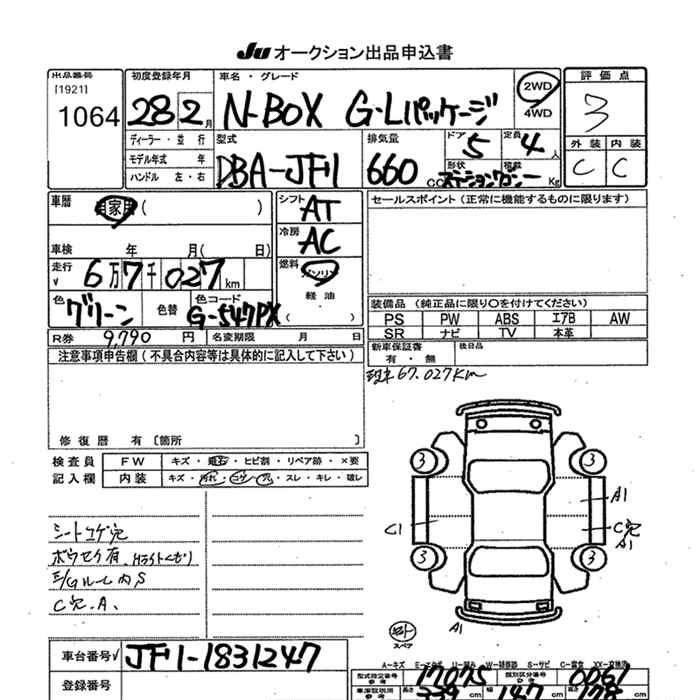 JU オークション出品申込書
出品番号
[1921]
1064
初度登録年月
28年2月
車名・グレード
N-BOX G・Lパッケージ
2WD
4WD
評価点
3
外装 内装
C C
ディーラー・並行
モデル年式 年
ハンドル 左・右
型式
DBA-JF1
排気量
660 CC
ドア 5
定員 4人
形状 ステーションワゴン
積載 Kg
車歴
自家用 ( )
車検 年 月( 日)
走行 6万7千027km
色 グリーン
色替
色コード G-547PX
シフト AT
冷房 AC
燃料 ガソリン
軽油
( )
セールスポイント (正常に機能するものに限ります)
装備品 (純正品に限り〇を付けてください)
PS PW ABS エアB AW
SR ナビ TV 本革
新車保証書 後日品
有・無
R券 9,790 円 名変期限 月 日
注意事項申告欄(不具合内容等は具体的に記入して下さい)
現車67.027Km
修復歴 有〔箇所 〕
検査員 FW キズ・飛石・ヒビ割・リペア跡・×要
記入欄 内装 キズ・汚れ・コゲ・穴・スレ・キレ・破レ
シートコゲ穴
ボウセイ有.
内S
C穴.A.
3 3
A1
C1
C穴
A1
3 3
スペア
A1
車台番号 JF1-1831247
登録番号
A-キズ W-補修跡 S-サビ C-腐食 XX-交換済
型式指定番号 17075 類別区分番号 0061
長さ cm 幅 cm 高さ cm